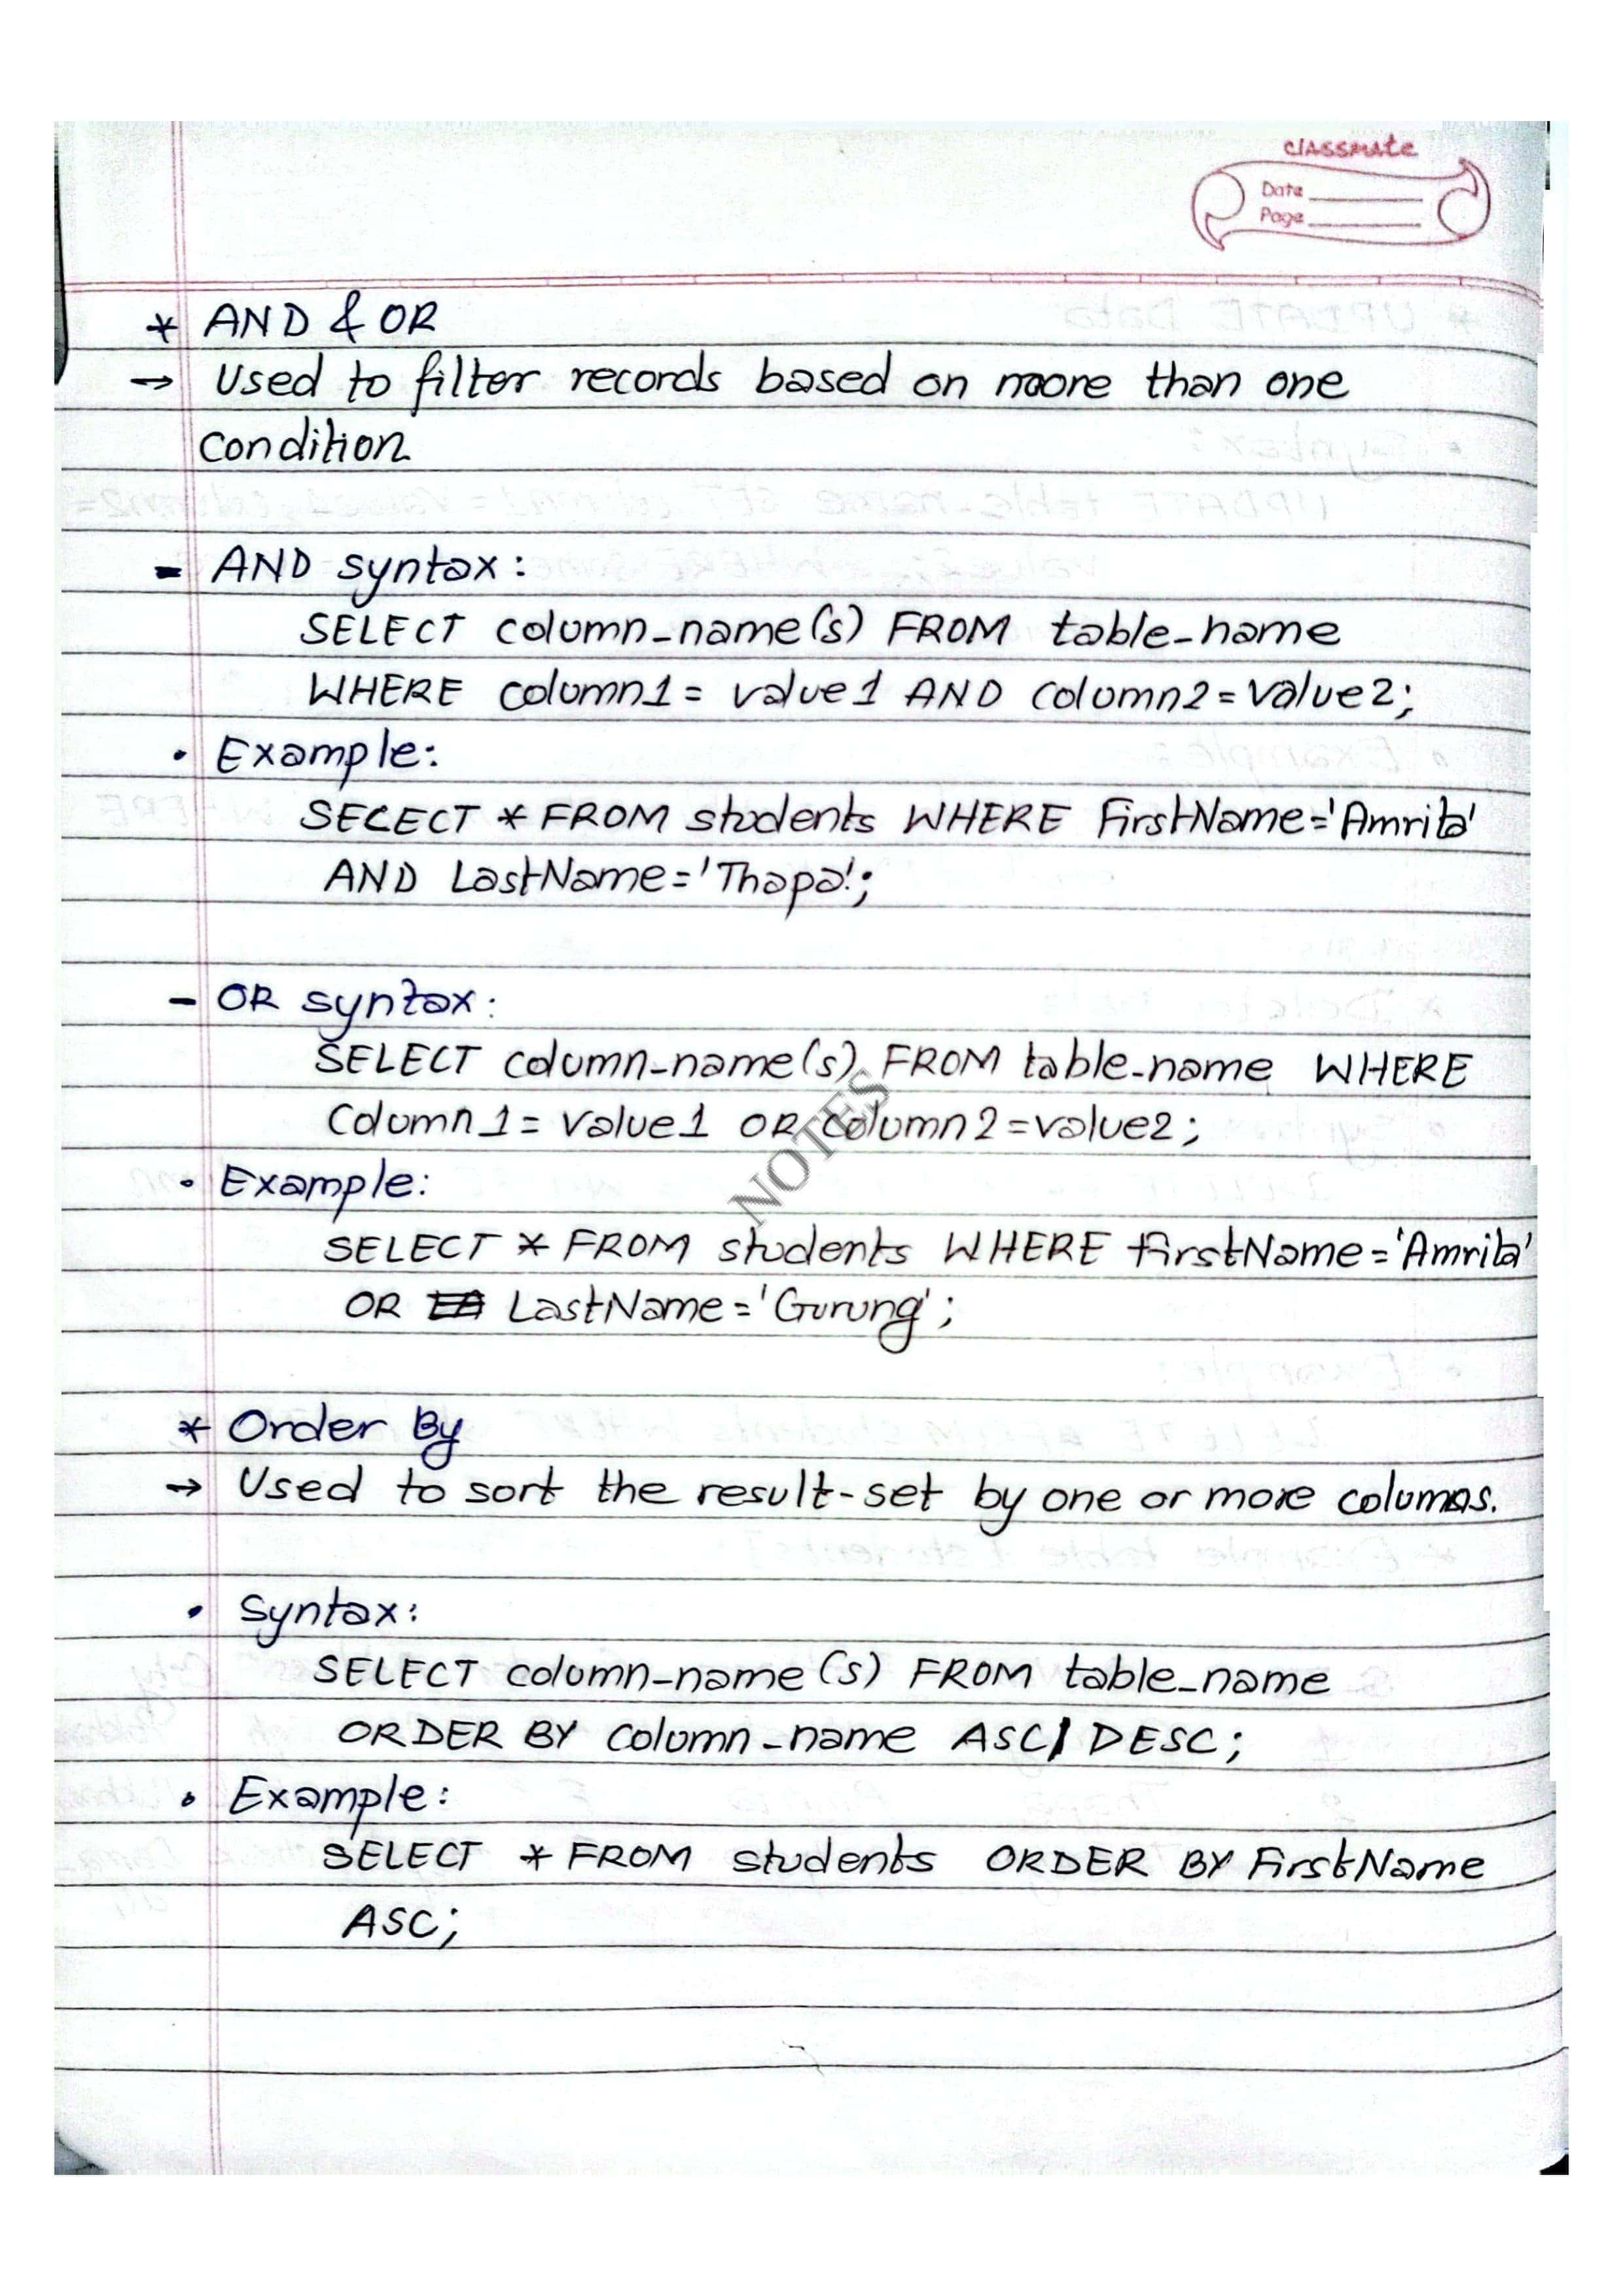 classmate
Date
Page
* AND & OR
→ Used to filter records based on more than one
condition
- AND syntax:
SELECT column_name(s) FROM table_name
WHERE column1 = value1 AND column2 = value2;
• Example:
SELECT * FROM students WHERE FirstName='Amrita'
AND LastName='Thapa';
- OR syntax:
SELECT column_name(s) FROM table_name WHERE
Column1 = value1 OR column2 = value2;
NOTES
• Example:
SELECT * FROM students WHERE firstName='Amrita'
OR LastName='Gurung';
* Order By
→ Used to sort the result-set by one or more columns.
• Syntax:
SELECT column_name(s) FROM table_name
ORDER BY column_name ASC| DESC;
• Example:
SELECT * FROM students ORDER BY FirstName
ASC;